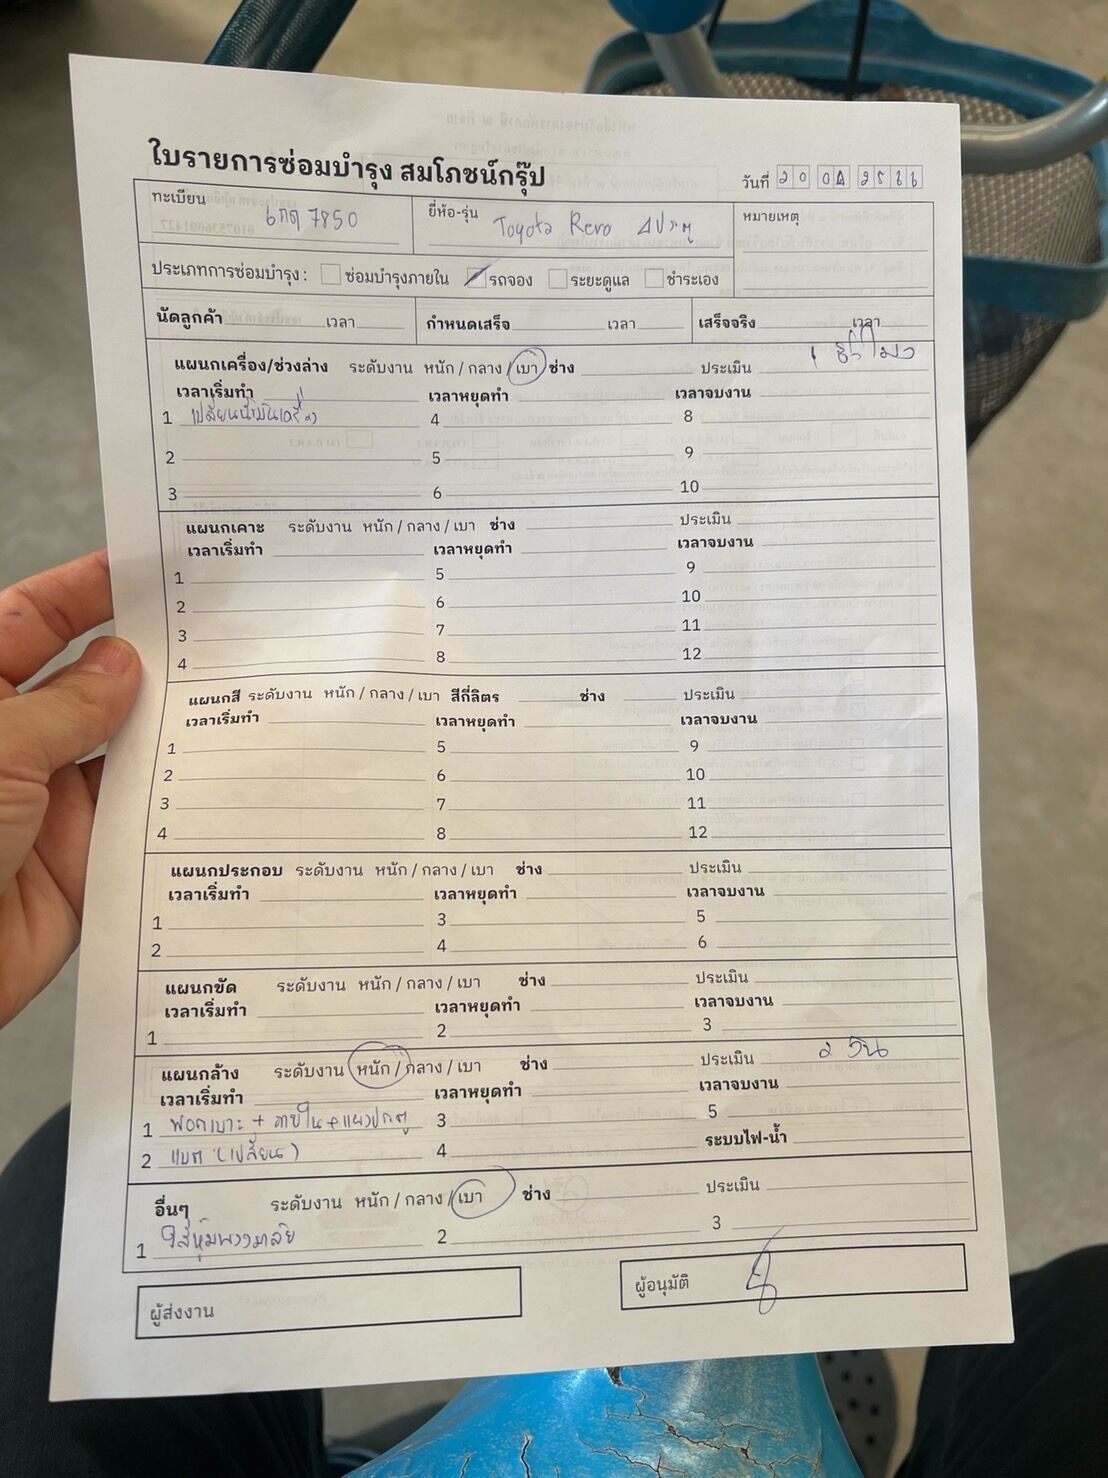 ใบรายการซ่อมบำรุง สมโภชน์กรุ๊ป
วันที่ 20 04 2566
ทะเบียน 6กด 7850 ยี่ห้อ-รุ่น Toyota Revo 4ประตู หมายเหตุ
ประเภทการซ่อมบำรุง : ซ่อมบำรุงภายใน รถจอง ระยะดูแล ชำระเอง
นัดลูกค้า เวลา กำหนดเสร็จ เวลา เสร็จจริง เวลา
แผนกเครื่อง/ช่วงล่าง ระดับงาน หนัก / กลาง / เบา ช่าง ประเมิน 1 ชั่วโมง
เวลาเริ่มทำ เวลาหยุดทำ เวลาจบงาน
1 เปลี่ยนน้ำมันเครื่อง 4 8
2 5 9
3 6 10
แผนกเคาะ ระดับงาน หนัก / กลาง / เบา ช่าง ประเมิน
เวลาเริ่มทำ เวลาหยุดทำ เวลาจบงาน
1 5 9
2 6 10
3 7 11
4 8 12
แผนกสี ระดับงาน หนัก / กลาง / เบา สีกี่ลิตร ช่าง ประเมิน
เวลาเริ่มทำ เวลาหยุดทำ เวลาจบงาน
1 5 9
2 6 10
3 7 11
4 8 12
แผนกประกอบ ระดับงาน หนัก / กลาง / เบา ช่าง ประเมิน
เวลาเริ่มทำ เวลาหยุดทำ เวลาจบงาน
1 3 5
2 4 6
แผนกขัด ระดับงาน หนัก / กลาง / เบา ช่าง ประเมิน
เวลาเริ่มทำ เวลาหยุดทำ เวลาจบงาน
1 2 3
แผนกล้าง ระดับงาน หนัก / กลาง / เบา ช่าง ประเมิน 2 วัน
เวลาเริ่มทำ เวลาหยุดทำ เวลาจบงาน
1 ฟอกเบาะ + ภายใน + แผงประตู 3 5
2 แบต (เปลี่ยน) 4 ระบบไฟ-น้ำ
อื่นๆ ระดับงาน หนัก / กลาง / เบา ช่าง ประเมิน
1 ใส่หุ้มพวงมาลัย 2 3
ผู้ส่งงาน ผู้อนุมัติ